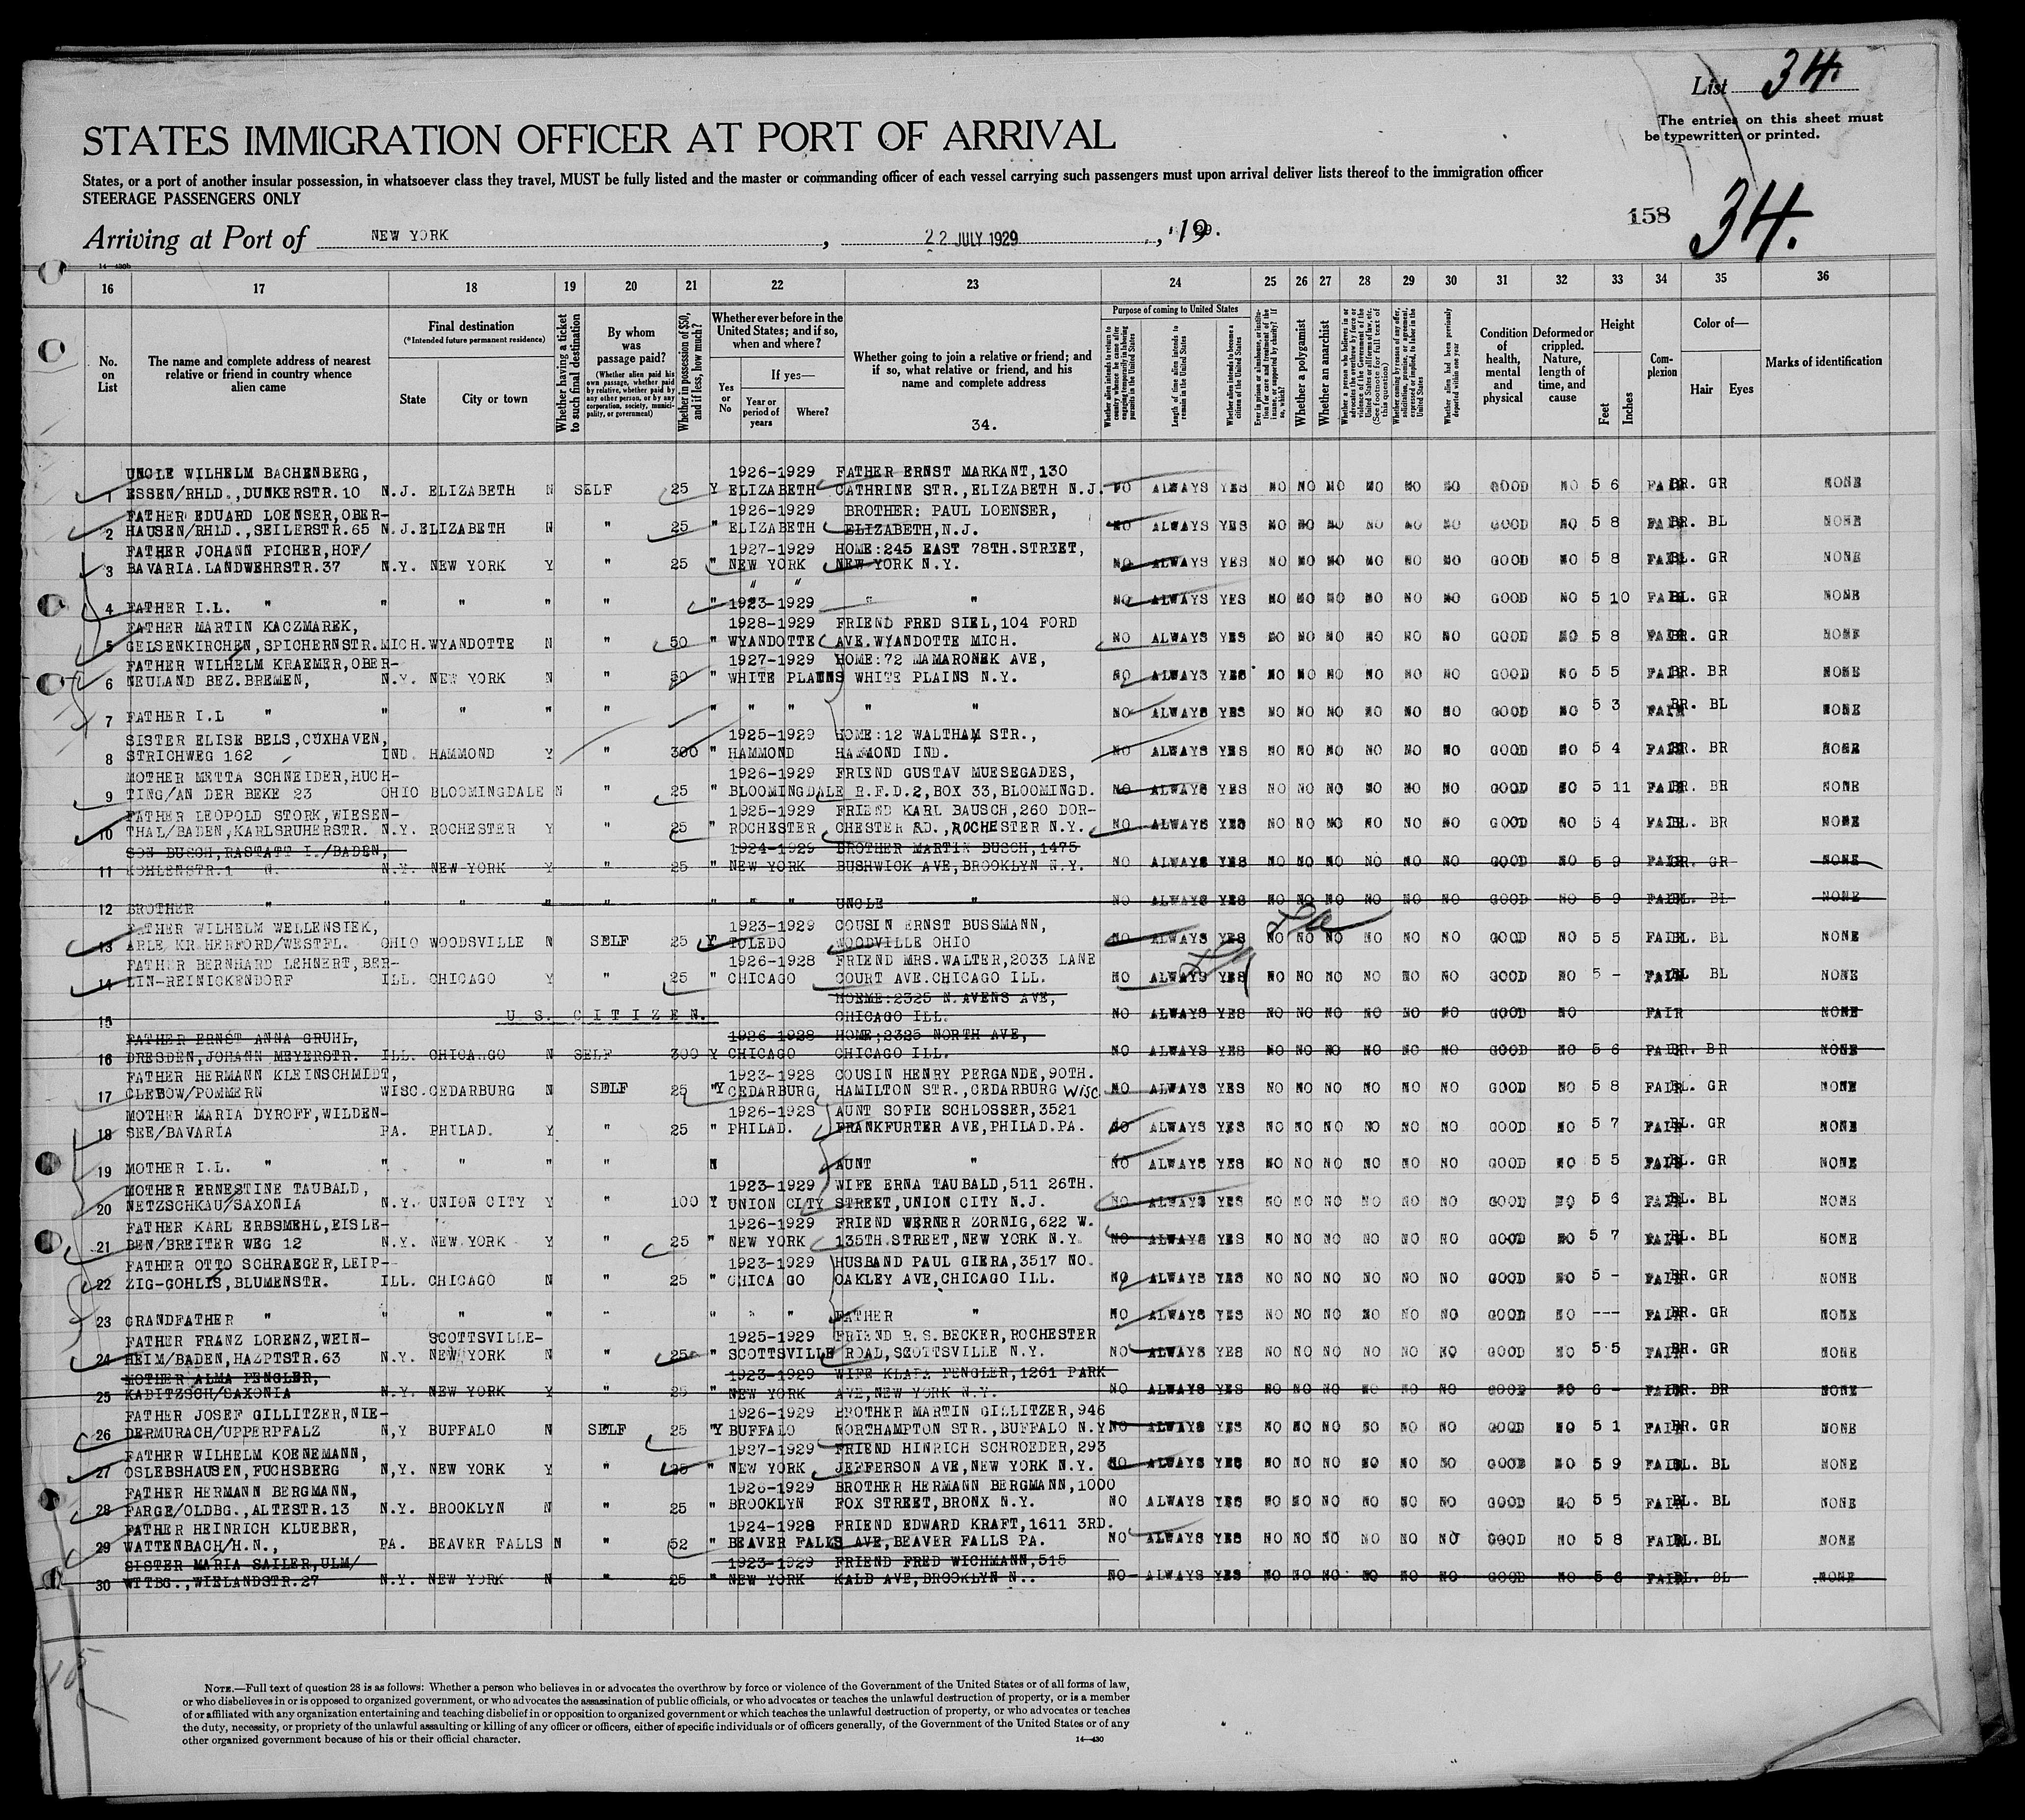 List 34.
The entries on this sheet must
be typewritten or printed.
STATES IMMIGRATION OFFICER AT PORT OF ARRIVAL
States, or a port of another insular possession, in whatsoever class they travel, MUST be fully listed and the master or commanding officer of each vessel carrying such passengers must upon arrival deliver lists thereof to the immigration officer
STEERAGE PASSENGERS ONLY
158 34.
Arriving at Port of NEW YORK, 22 JULY 1929, 19
14—430b
16 17 18 19 20 21 22 23 24 25 26 27 28 29 30 31 32 33 34 35 36
No. on List
The name and complete address of nearest relative or friend in country whence alien came
Final destination
(*Intended future permanent residence)
State
City or town
Whether having a ticket to such final destination
By whom was passage paid?
(Whether alien paid his own passage, whether paid by relative, whether paid by any other person, or by any corporation, society, municipality, or government)
Whether in possession of $50, and if less, how much?
Whether ever before in the United States; and if so, when and where?
Yes or No
If yes—
Year or period of years
Where?
Whether going to join a relative or friend; and if so, what relative or friend, and his name and complete address
34.
Purpose of coming to United States
Whether alien intends to return to country whence he came after engaging temporarily in laboring pursuits in the United States
Length of time alien intends to remain in the United States
Whether alien intends to become a citizen of the United States
Ever in prison or almshouse, or institution for care and treatment of the insane, or supported by charity? If so, which?
Whether a polygamist
Whether an anarchist
Whether a person who believes in or advocates the overthrow by force or violence of the Government of the United States or all forms of law, etc. (See footnote for full text of this question)
Whether coming by reason of any offer, solicitation, promise, or agreement, expressed or implied, to labor in the United States
Whether alien had been previously deported within one year
Condition of health, mental and physical
Deformed or crippled. Nature, length of time, and cause
Height
Feet
Inches
Complexion
Color of—
Hair
Eyes
Marks of identification
UNCLE WILHELM BACHENBERG, 1926-1929 FATHER ERNST MARKANT,130
1 ESSEN/RHLD.,DUNKERSTR.10 N.J. ELIZABETH N SELF 25 Y ELIZABETH CATHRINE STR.,ELIZABETH N.J. NO ALWAYS YES NO NO NO NO NO NO GOOD NO 5 6 FAIR BR. GR NONE
FATHER EDUARD LOENSER,OBER- 1926-1929 BROTHER: PAUL LOENSER,
2 HAUSEN/RHLD.,SEILERSTR.65 N.J. ELIZABETH N " 25 " ELIZABETH ELIZABETH,N.J. NO ALWAYS YES NO NO NO NO NO NO GOOD NO 5 8 FAIR BR. BL NONE
FATHER JOHANN FICHER,HOF/ 1927-1929 HOME:245 EAST 78TH.STREET,
3 BAVARIA.LANDWEHRSTR.37 N.Y. NEW YORK Y " 25 " NEW YORK NEW YORK N.Y. NO ALWAYS YES NO NO NO NO NO NO GOOD NO 5 8 FAIR BL. GR NONE
" "
4 FATHER I.L. " " " " " " 1923-1929 " " NO ALWAYS YES NO NO NO NO NO NO GOOD NO 5 10 FAIR BL. GR NONE
FATHER MARTIN KACZMAREK, 1928-1929 FRIEND FRED SIEL,104 FORD
5 GELSENKIRCHEN,SPICHERNSTR. MICH. WYANDOTTE N " 50 " WYANDOTTE AVE.WYANDOTTE MICH. NO ALWAYS YES NO NO NO NO NO NO GOOD NO 5 8 FAIR BR. GR NONE
FATHER WILHELM KRAEMER,OBER- 1927-1929 HOME:72 MAMARONEK AVE,
6 NEULAND BEZ.BREMEN, N.Y. NEW YORK N " 50 " WHITE PLAINS WHITE PLAINS N.Y. NO ALWAYS YES NO NO NO NO NO NO GOOD NO 5 5 FAIR BR. BR NONE
7 FATHER I.L " " " " " " " " " " NO ALWAYS YES NO NO NO NO NO NO GOOD NO 5 3 FAIR BR. BL NONE
SISTER ELISE BELS,CUXHAVEN, 1925-1929 HOME:12 WALTHAM STR.,
8 STRICHWEG 162 IND. HAMMOND Y " 300 " HAMMOND HAMMOND IND. NO ALWAYS YES NO NO NO NO NO NO GOOD NO 5 4 FAIR BR. BR NONE
MOTHER METTA SCHNEIDER,HUCH- 1926-1929 FRIEND GUSTAV MUESEGADES,
9 TING/AN DER BEKE 23 OHIO BLOOMINGDALE N " 25 " BLOOMINGDALE R.F.D.2,BOX 33,BLOOMINGD. NO ALWAYS YES NO NO NO NO NO NO GOOD NO 5 11 FAIR BR. BR NONE
FATHER LEOPOLD STORK,WIESEN- 1925-1929 FRIEND KARL BAUSCH,260 DOR-
10 THAL/BADEN,KARLSRUHERSTR. N.Y. ROCHESTER Y " 25 " ROCHESTER CHESTER RD.,ROCHESTER N.Y. NO ALWAYS YES NO NO NO NO NO NO GOOD NO 5 4 FAIR BL. BR NONE
SON BUSCH,RASTATT I./BADEN, 1924-1929 BROTHER MARTIN BUSCH,1475
11 KOHLENSTR.1 N.Y. NEW YORK Y " 25 " NEW YORK BUSHWICK AVE,BROOKLYN N.Y. NO ALWAYS YES NO NO NO NO NO NO GOOD NO 5 9 FAIR GR. GR NONE
12 BROTHER " " " " " " " " UNCLE " NO ALWAYS YES NO NO NO NO NO NO GOOD NO 5 9 FAIR BL. BL NONE
FATHER WILHELM WELLENSIEK, 1923-1929 COUSIN ERNST BUSSMANN,
13 ARLE KR.HERFORD/WESTFL. OHIO WOODSVILLE N SELF 25 Y TOLEDO WOODVILLE OHIO NO ALWAYS YES NO NO NO NO NO NO GOOD NO 5 5 FAIR BL. BL NONE
FATHER BERNHARD LEHNERT,BER- 1926-1928 FRIEND MRS.WALTER,2033 LANE
14 LIN-REINICKENDORF ILL. CHICAGO Y " 25 " CHICAGO COURT AVE.CHICAGO ILL. NO ALWAYS YES NO NO NO NO NO NO GOOD NO 5 - FAIR BL BL NONE
HOEME:2325 N.AVENS AVE,
15 U.S. CITIZEN. CHICAGO ILL. NO ALWAYS YES NO NO NO NO NO NO GOOD NO FAIR NONE
FATHER ERNST ANNA GRUHL, 1926-1928 HOME;2325 NORTH AVE,
16 DRESDEN,JOHANN MEYERSTR. ILL. CHICAGO N SELF 300 Y CHICAGO CHICAGO ILL. NO ALWAYS YES NO NO NO NO NO NO GOOD NO 5 6 FAIR BR. BR NONE
FATHER HERMANN KLEINSCHMIDT, 1923-1928 COUSIN HENRY PERGANDE,90TH.
17 CLEBOW/POMMERN WISC. CEDARBURG N SELF 25 "Y CEDARBURG, HAMILTON STR.,CEDARBURG Wisc. NO ALWAYS YES NO NO NO NO NO NO GOOD NO 5 8 FAIR BL. GR NONE
MOTHER MARIA DYROFF,WILDEN- 1926-1928 AUNT SOFIE SCHLOSSER,3521
18 SEE/BAVARIA PA. PHILAD. Y " 25 " PHILAD. FRANKFURTER AVE,PHILAD.PA. NO ALWAYS YES NO NO NO NO NO NO GOOD NO 5 7 FAIR BL. GR NONE
19 MOTHER I.L. " " " " " N AUNT " NO ALWAYS YES NO NO NO NO NO NO GOOD NO 5 5 FAIR BL. GR NONE
MOTHER ERNESTINE TAUBALD, 1923-1929 WIFE ERNA TAUBALD,511 26TH.
20 NETZSCHKAU/SAXONIA N.Y. UNION CITY Y " 100 Y UNION CITY STREET,UNION CITY N.J. NO ALWAYS YES NO NO NO NO NO NO GOOD NO 5 6 FAIR BL. BL NONE
FATHER KARL ERBSMEHL,EISLE- 1926-1929 FRIEND WERNER ZORNIG,622 W.
21 BEN/BREITER WEG 12 N.Y. NEW.YORK Y " 25 " NEW YORK 135TH.STREET,NEW YORK N.Y. NO ALWAYS YES NO NO NO NO NO NO GOOD NO 5 7 FAIR BL. BL NONE
FATHER OTTO SCHRAEGER,LEIP- 1923-1929 HUSBAND PAUL GIERA,3517 NO.
22 ZIG-GOHLIS,BLUMENSTR. ILL. CHICAGO N " 25 " CHICA GO OAKLEY AVE,CHICAGO ILL. NO ALWAYS YES NO NO NO NO NO NO GOOD NO 5 - FAIR BR. GR NONE
23 GRANDFATHER " " " " " " " " FATHER " NO ALWAYS YES NO NO NO NO NO NO GOOD NO --- FAIR BR. GR NONE
FATHER FRANZ LORENZ,WEIN- SCOTTSVILLE- 1925-1929 FRIEND R.S.BECKER,ROCHESTER
24 HEIM/BADEN,HAZPTSTR.63 N.Y. NEW YORK N " 25 " SCOTTSVILLE ROAD,SCOTTSVILLE N.Y. NO ALWAYS YES NO NO NO NO NO NO GOOD NO 5 5 FAIR BR. GR NONE
MOTHER ALMA FENGLER, 1923-1929 WIFE KLARA FENGLER,1261 PARK
25 KADITZSCH/SAXONIA N.Y. NEW YORK Y " 25 " NEW YORK AVE,NEW YORK N.Y. NO ALWAYS YES NO NO NO NO NO NO GOOD NO 6 - FAIR BR. BR NONE
FATHER JOSEF GILLITZER,NIE- 1926-1929 BROTHER MARTIN GILLITZER,946
26 DERMURACH/UPPERPFALZ N,Y BUFFALO N SELF 25 "Y BUFFALO NORTHAMPTON STR.,BUFFALO N.Y. NO ALWAYS YES NO NO NO NO NO NO GOOD NO 5 1 FAIR BR. GR NONE
FATHER WILHELM KOENEMANN, 1927-1929 FRIEND HINRICH SCHROEDER,293
27 OSLEBSHAUSEN,FUCHSBERG N,Y. NEW YORK Y " 25 " NEW YORK JEFFERSON AVE,NEW YORK N.Y. NO ALWAYS YES NO NO NO NO NO NO GOOD NO 5 9 FAIR BL. BL NONE
FATHER HERMANN BERGMANN, 1926-1929 BROTHER HERMANN BERGMANN,1000
28 FARGE/OLDBG.,ALTESTR.13 N.Y. BROOKLYN N " 25 " BROOKLYN FOX STREET,BRONX N.Y. NO ALWAYS YES NO NO NO NO NO NO GOOD NO 5 5 FAIR BL. BL NONE
FATHER HEINRICH KLUEBER, 1924-1928 FRIEND EDWARD KRAFT,1611 3RD.
29 WATTENBACH/H.N., PA. BEAVER FALLS N " 52 " BEAVER FALLS AVE,BEAVER FALLS PA. NO ALWAYS YES NO NO NO NO NO NO GOOD NO 5 8 FAIR BL.BL NONE
SISTER MARIA SAILER,ULM/ 1923-1929 FRIEND FRED WICHMANN,515
30 WTTBG.,WIELANDSTR.27 N.Y. NEW YORK N " 25 " NEW YORK KALD AVE,BROOKLYN N.. NO ALWAYS YES NO NO NO NO NO NO GOOD NO 5 6 FAIR BL. BL NONE
NOTE.—Full text of question 28 is as follows: Whether a person who believes in or advocates the overthrow by force or violence of the Government of the United States or of all forms of law,
or who disbelieves in or is opposed to organized government, or who advocates the assassination of public officials, or who advocates or teaches the unlawful destruction of property, or is a member
of or affiliated with any organization entertaining and teaching disbelief in or opposition to organized government or which teaches the unlawful destruction of property, or who advocates or teaches
the duty, necessity, or propriety of the unlawful assaulting or killing of any officer or officers, either of specific individuals or of officers generally, of the Government of the United States or of any
other organized government because of his or their official character.
14—430